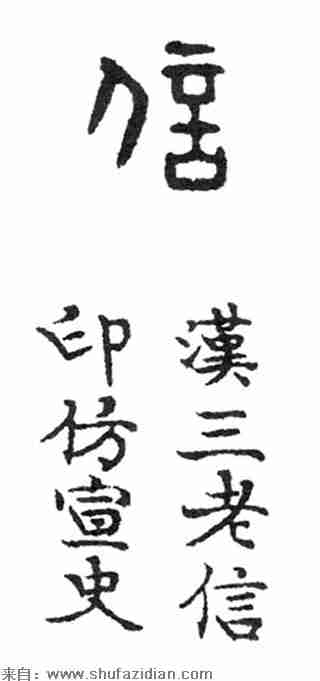 信
漢三老信
印仿宣史
来自：www.shufazidian.com